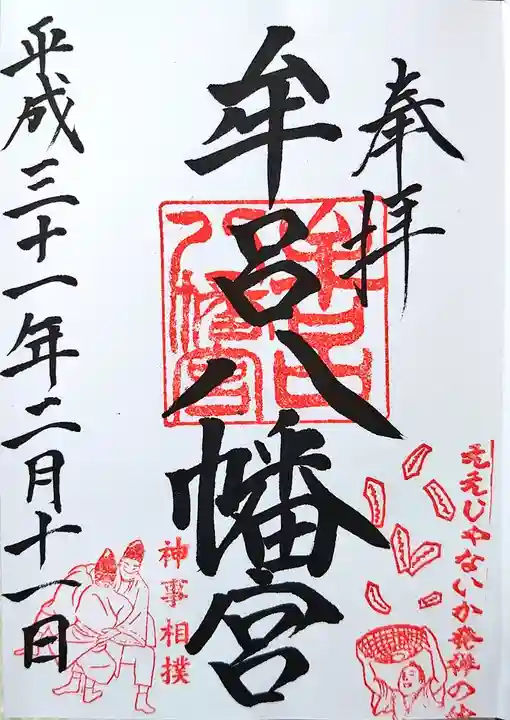 奉拝
牟呂八幡宮
平成三十一年二月十一日
牟呂八幡宮
ええじゃないか発祥の
神事相撲